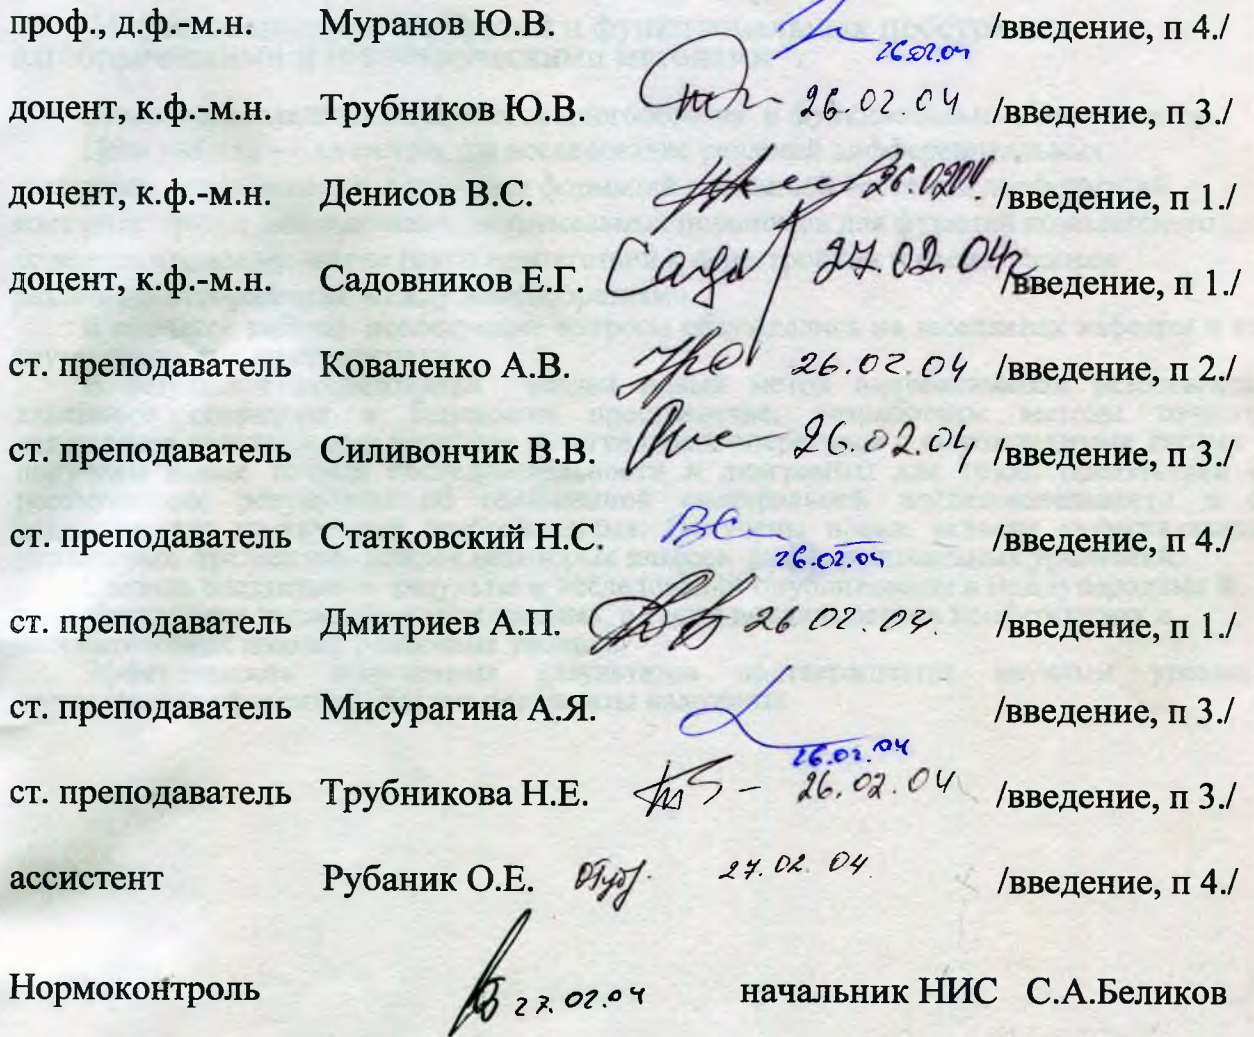 проф., д.ф.-м.н. Муранов Ю.В. 26.02.04 /введение, п 4./
доцент, к.ф.-м.н. Трубников Ю.В. 26.02.04 /введение, п 3./
доцент, к.ф.-м.н. Денисов В.С. 26.02.04 /введение, п 1./
доцент, к.ф.-м.н. Садовников Е.Г. 27.02.04г /введение, п 1./
ст. преподаватель Коваленко А.В. 26.02.04 /введение, п 2./
ст. преподаватель Силивончик В.В. 26.02.04 /введение, п 3./
ст. преподаватель Статковский Н.С. 26.02.04 /введение, п 4./
ст. преподаватель Дмитриев А.П. 26.02.04. /введение, п 1./
ст. преподаватель Мисурагина А.Я. 26.02.04 /введение, п 3./
ст. преподаватель Трубникова Н.Е. 26.02.04 /введение, п 3./
ассистент Рубаник О.Е. 27.02.04 /введение, п 4./
Нормоконтроль 27.02.04 начальник НИС С.А.Беликов